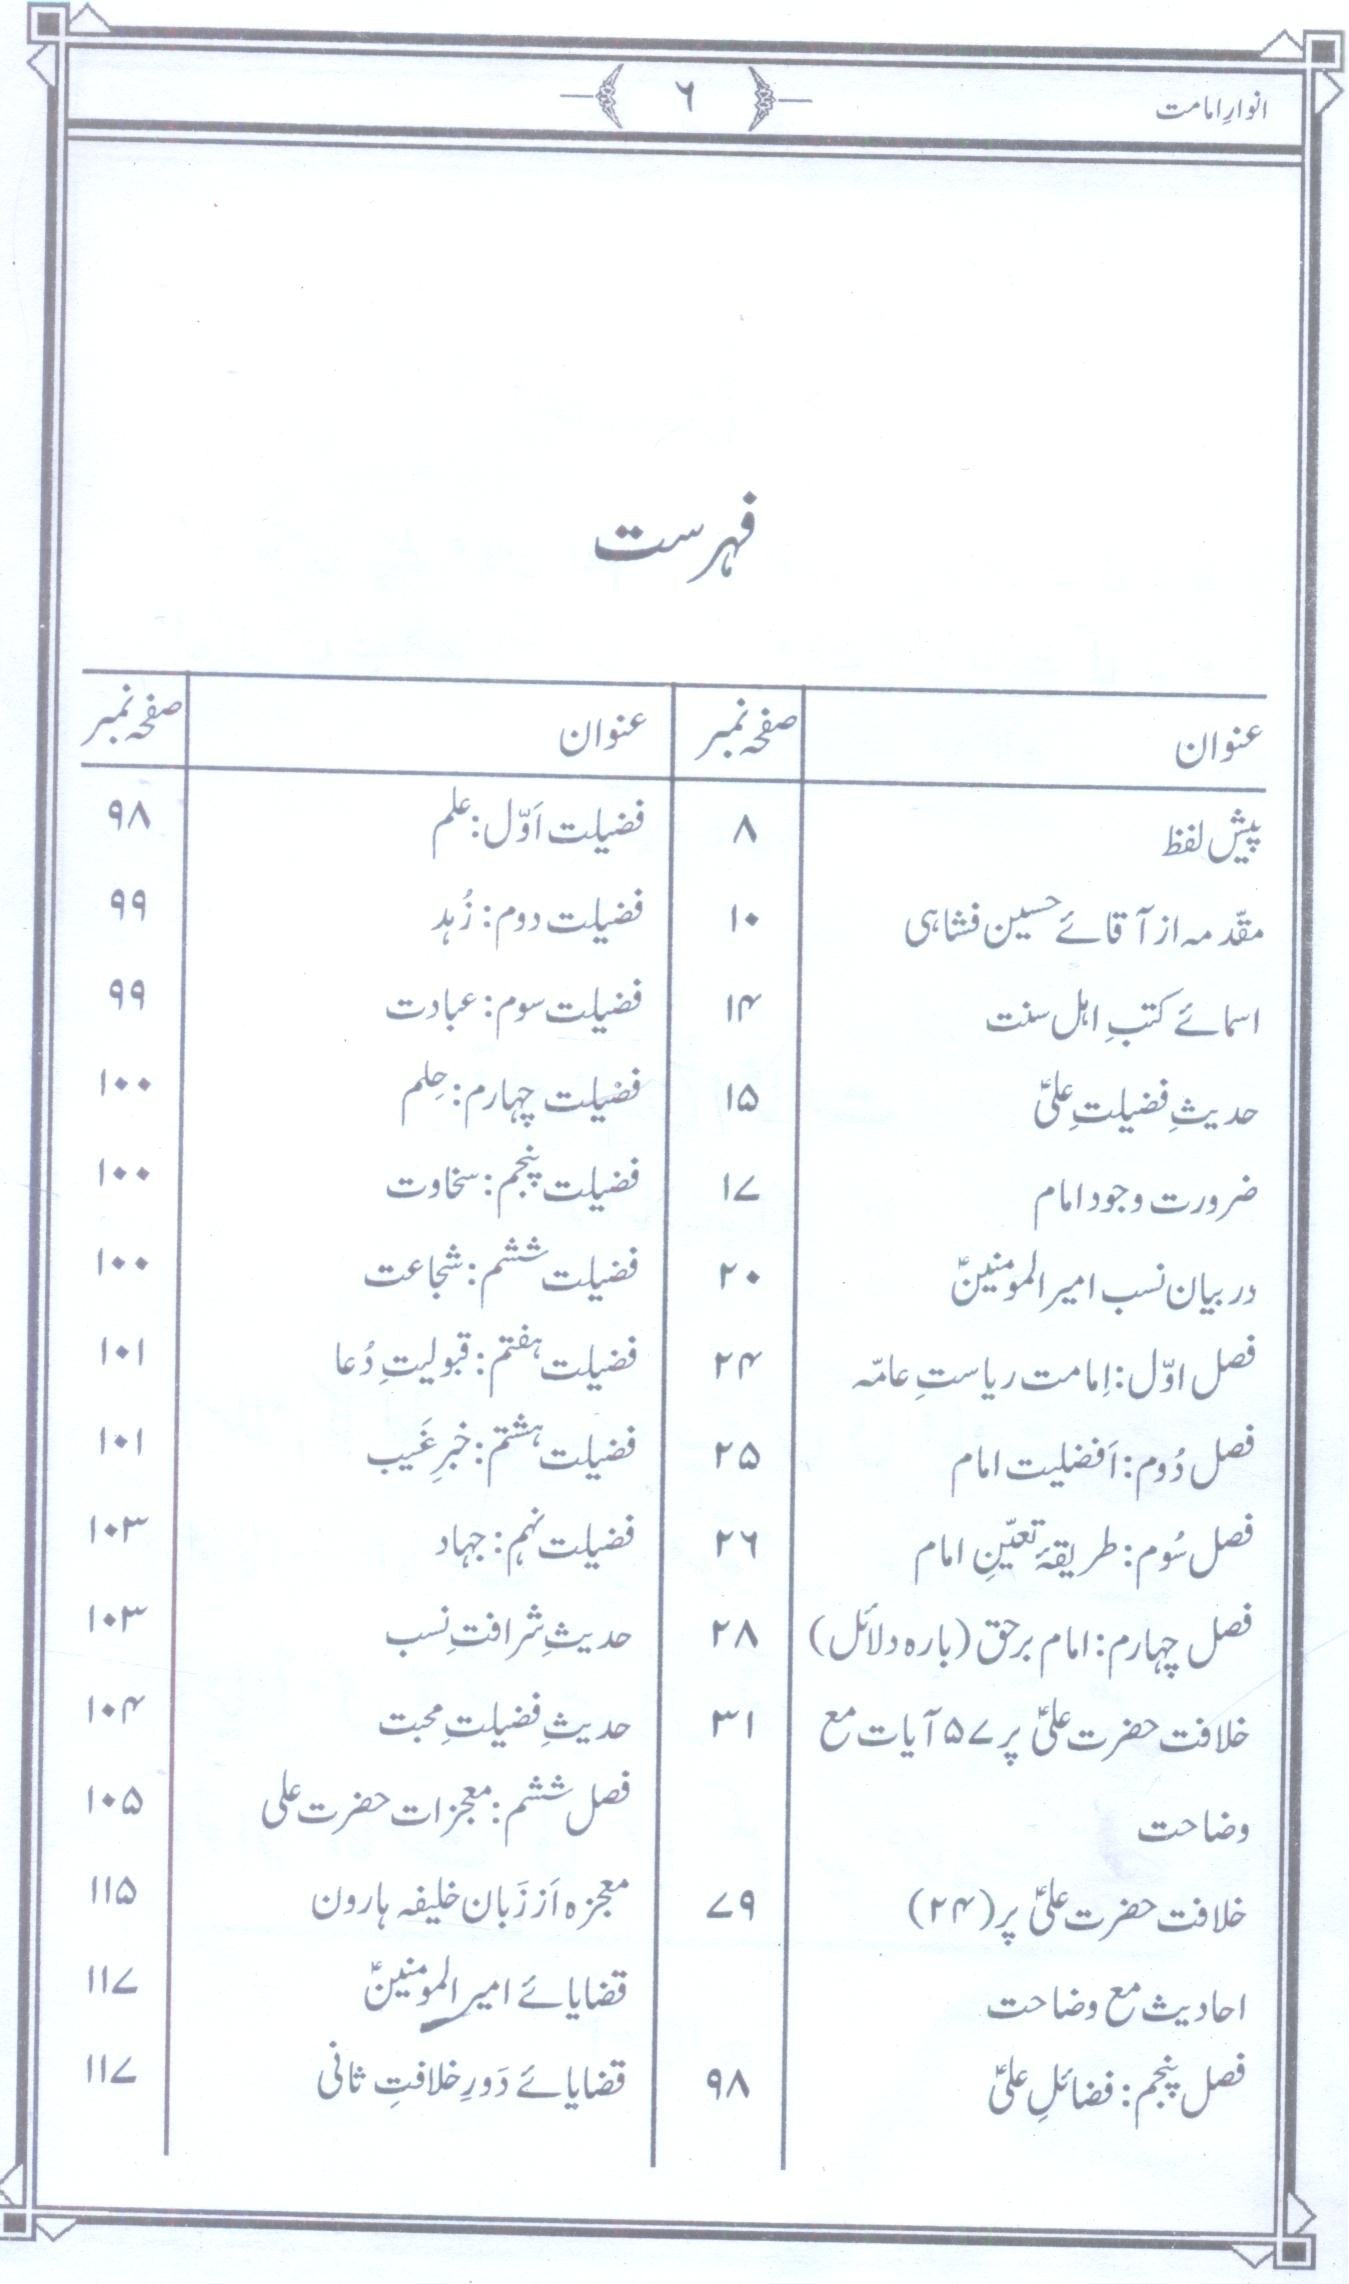 انوارِ امامت
۶
فہرست
عنوان صفحہ نمبر عنوان صفحہ نمبر
پیش لفظ ۸ فضیلت اَوّل: علم ۹۸
مقدّمہ از آقائے حسین فشاہی ۱۰ فضیلت دوم: زُہد ۹۹
اسمائے کتبِ اہل سنت ۱۴ فضیلت سوم: عبادت ۹۹
حدیثِ فضیلتِ علیؑ ۱۵ فضیلت چہارم: حِلم ۱۰۰
ضرورت وجود امام ۱۷ فضیلت پنجم: سخاوت ۱۰۰
در بیان نسب امیر المومنینؑ ۲۰ فضیلت ششم: شجاعت ۱۰۰
فصل اوّل: اِمامت ریاستِ عامّہ ۲۴ فضیلت ہفتم: قبولیتِ دُعا ۱۰۱
فصل دُوم: اَفضلیت امام ۲۵ فضیلت ہشتم: خبرِ غَیب ۱۰۱
فصل سُوم: طریقۂ تعیّنِ امام ۲۶ فضیلت نہم: جہاد ۱۰۳
فصل چہارم: امام برحق (بارہ دلائل) ۲۸ حدیثِ شرافتِ نسب ۱۰۳
خلافت حضرت علیؑ پر ۵۷ آیات مع ۳۱ حدیثِ فضیلتِ محبت ۱۰۴
وضاحت فصل ششم: معجزات حضرت علی ۱۰۵
خلافت حضرت علیؑ پر (۲۴) ۷۹ معجزہ اَز زَبان خلیفہ ہارون ۱۱۵
احادیث مع وضاحت قضایائے امیر المومنینؑ ۱۱۷
فصل پنجم: فضائلِ علیؑ ۹۸ قضایائے دَورِ خلافتِ ثانی ۱۱۷